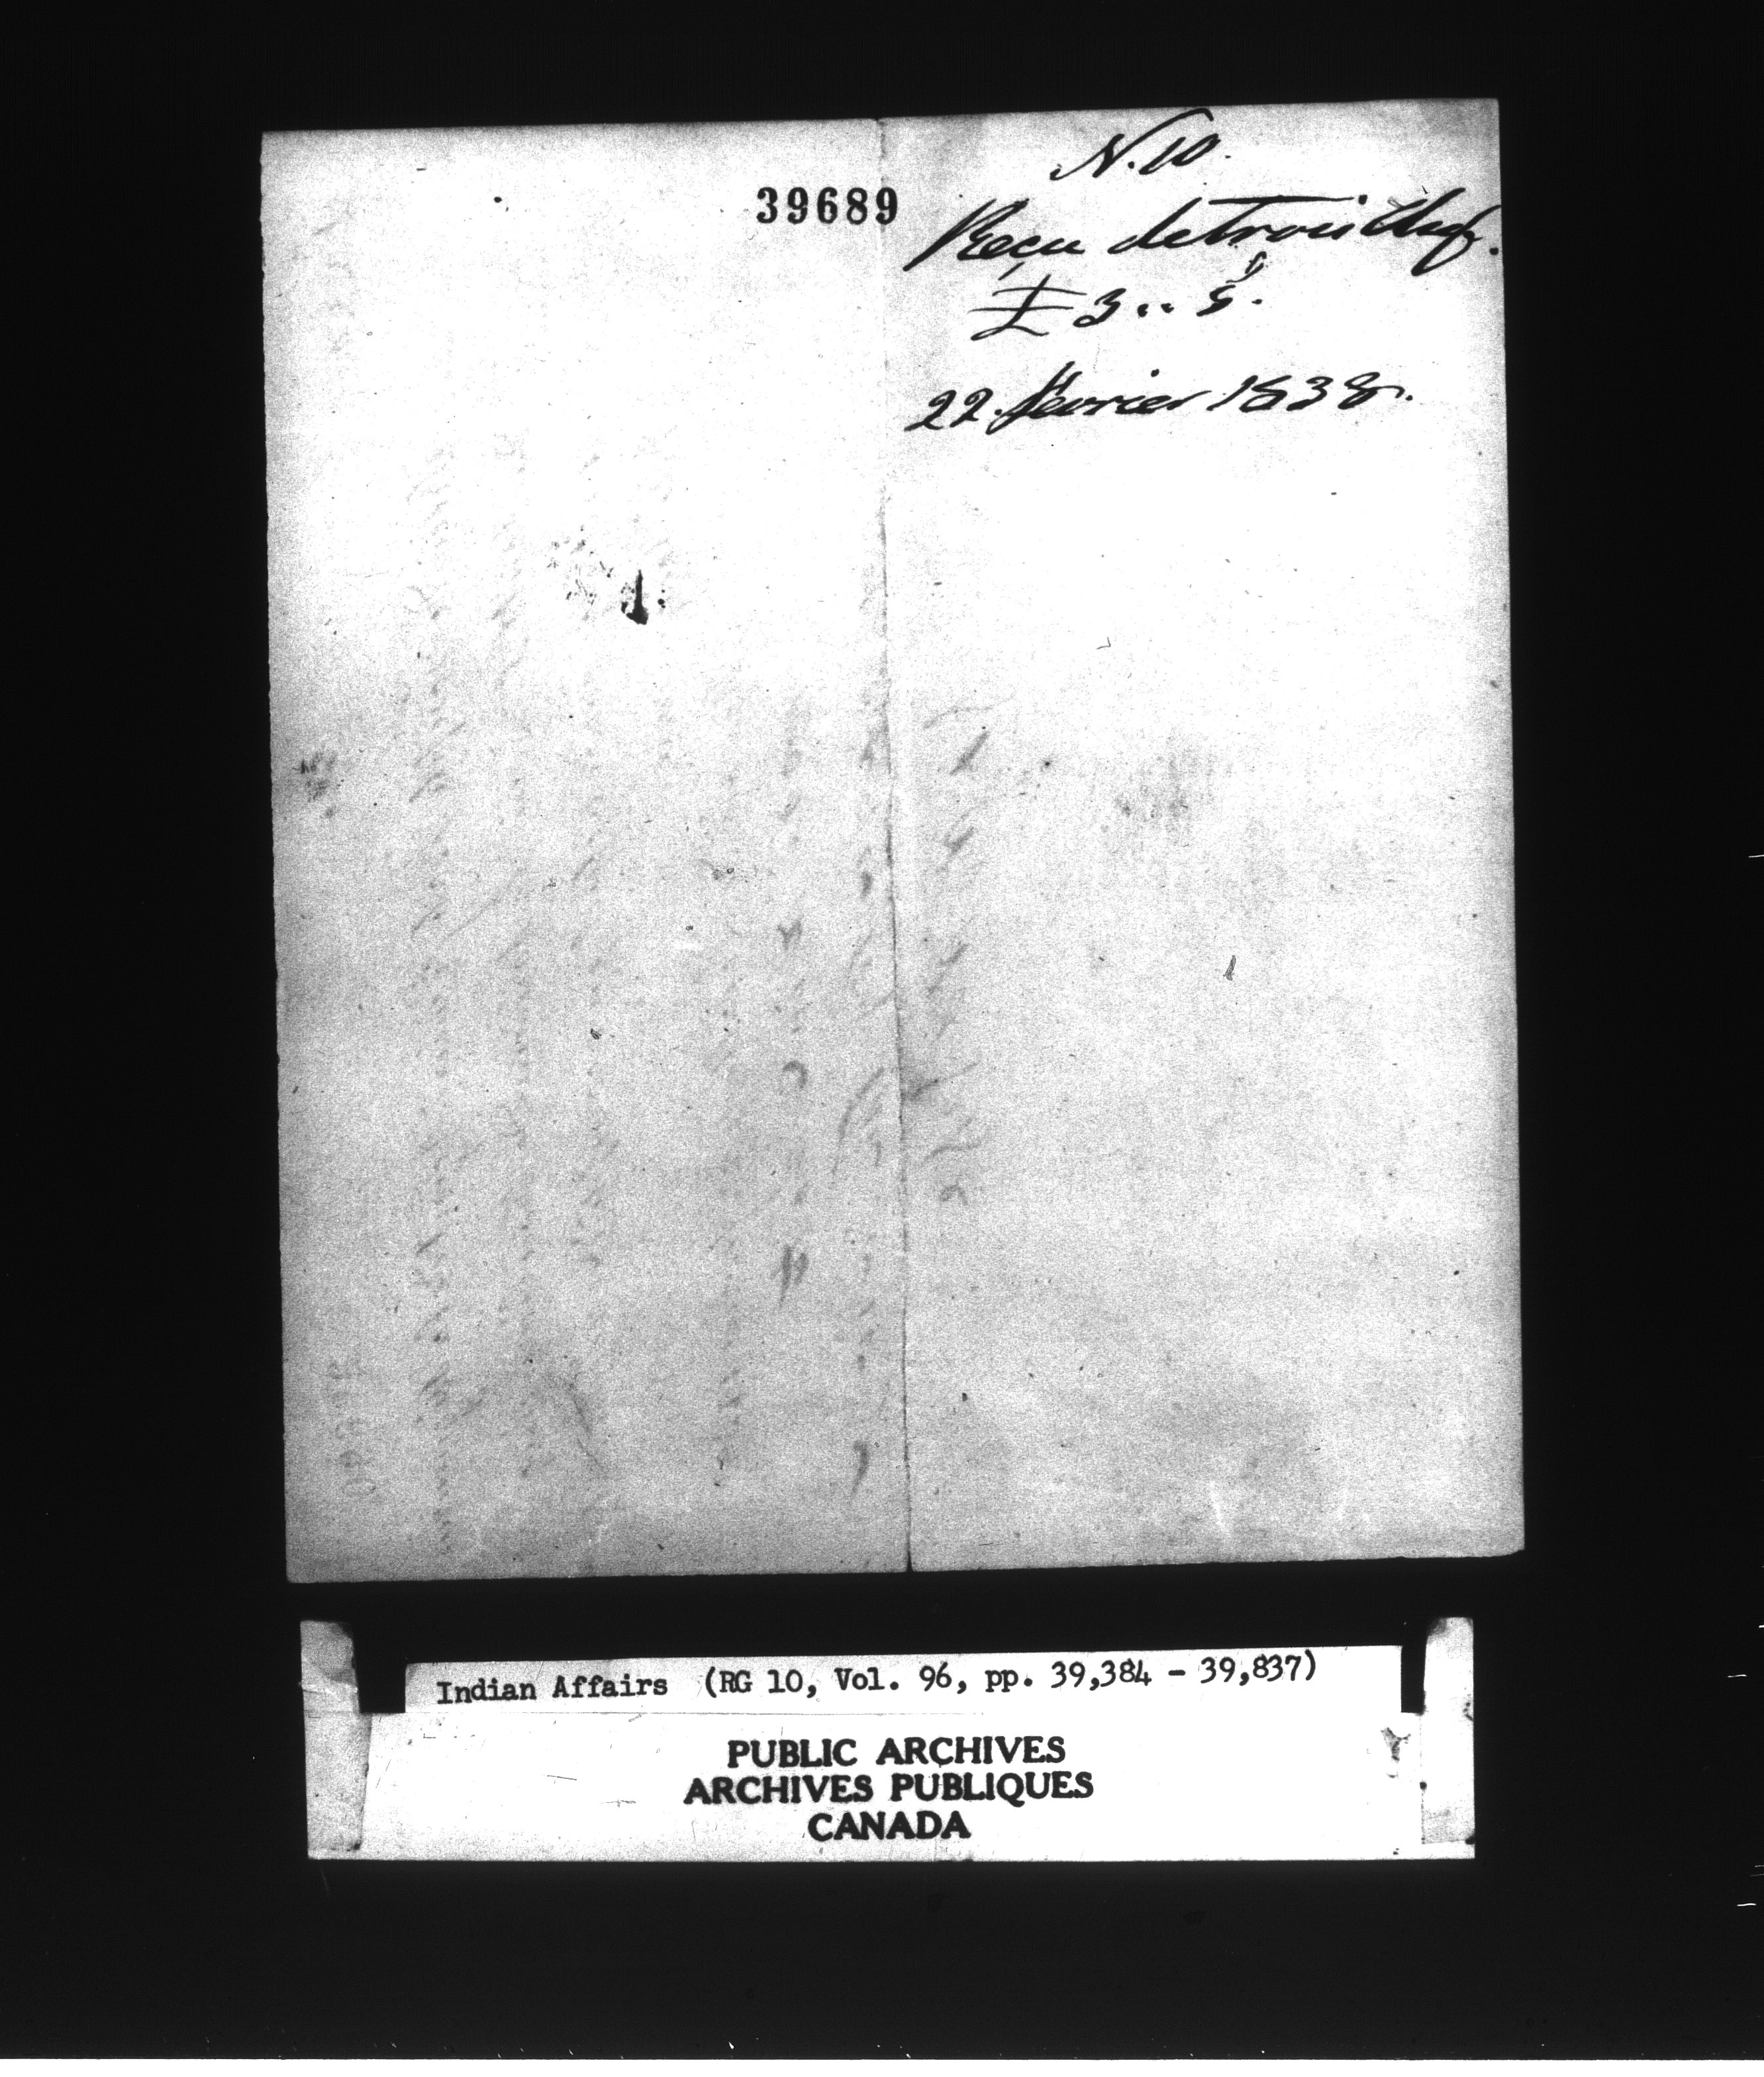 39689
N. 10.
Reçu de trois Chefs.
£ 3 .. 5.
22. fevrier 1838.
Indian Affairs (RG 10, Vol. 96, pp. 39,384 - 39,837)
PUBLIC ARCHIVES
ARCHIVES PUBLIQUES
CANADA